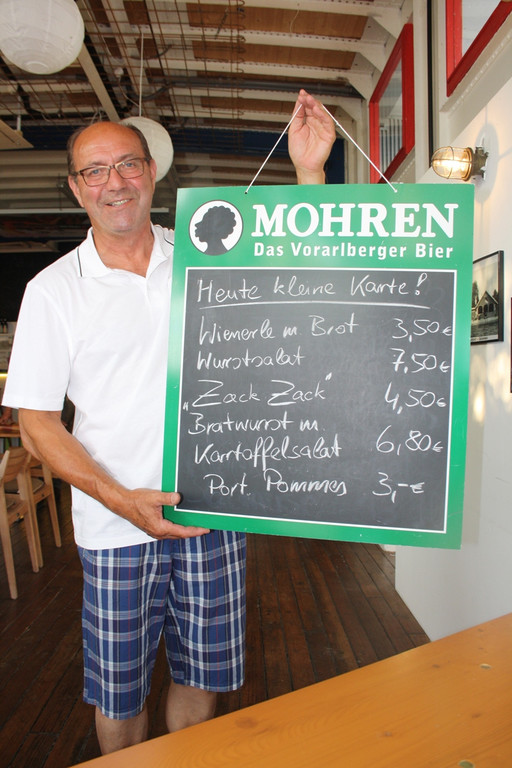 MOHREN
Das Vorarlberger Bier
Heute kleine Karte!
Wienerle m Brot 3,50€
Wurstsalat 7,50€
„Zack Zack" 4,50€
Bratwurst m.
Kartoffelsalat 6,80€
Port. Pommes 3,-€